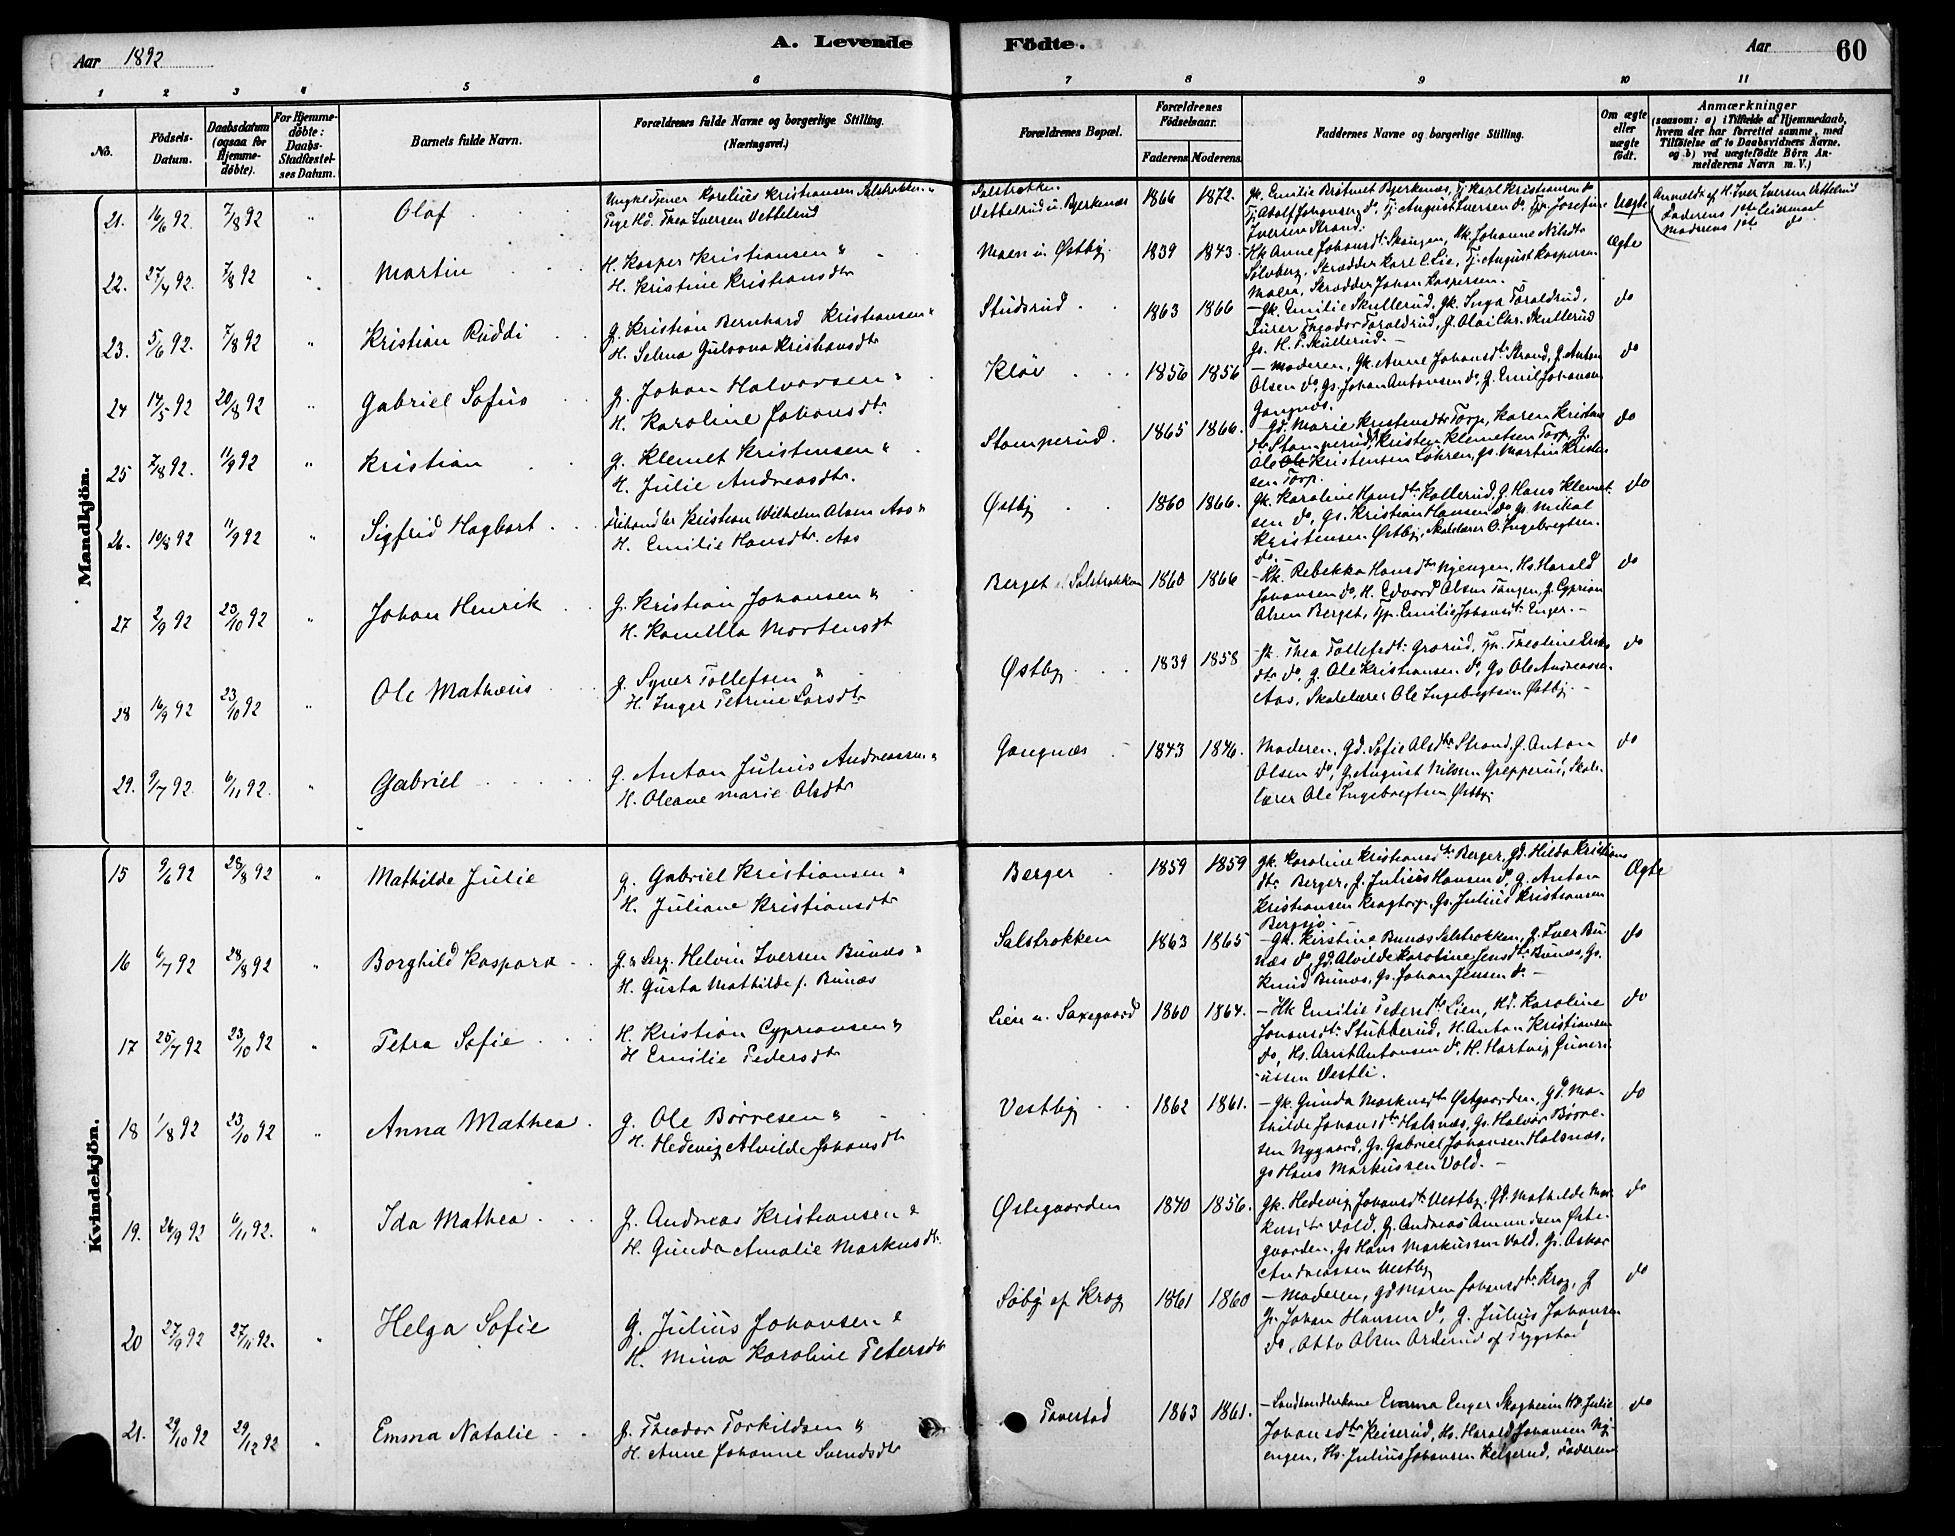 Aar 1892
A. Levende
Födte.
Aar
60
1 2 3 4 5 6 7 8 9 10 11
No.
Födsels-Datum.
Daabsdatum (ogsaa for Hjemmedöbte).
For Hjemmedöbte: Daabs-Stadfæstelses Datum.
Barnets fulde Navn.
Forældrenes fulde Navne og borgerlige Stilling. (Næringsvei.)
Forældrenes Bopæl.
Forældrenes Födselsaar.
Faderens Moderens
Faddernes Navne og borgerlige Stilling.
Om ægte eller uægte födt.
Anmærkninger
(saasom: a) i Tilfælde af Hjemmedaab, hvem der har forrettet samme, med Tilföielse af to Daabsvidners Navne, og b) ved uægtefödte Börn Anmelderens Navn m. V.)
Mandkjön.
21. 16/6 92. 7/8 92 " Olaf
Ungk. Tjener Karelius Kristiansen Salstrokken "
Pige Hd. Thea Iversen Vettelrud
Salstrokken
Vettelrud u. Bjerkenæs 1866 1872.
Gk. Emilie Britmet Bjerkenæs, Tj. Karl Kristiansen do
Tj. Adolf Johansen do, Tj. August Iversen do, Tp. Josefine
Iversen Strand.
Uægte
Anmeldt af H. Iver Iversen Vettelrud
Faderens 1ste Leiermaal
Moderens 1ste do
22. 27/4 92. 7/8 92 " Martin
H. Kasper Kristiansen "
H. Kristine Kristiansdtr
Moen u. Østby 1839 1843.
Hk. Anne Johansdtr Skaugen, Hk. Johanne Nilsdtr
Sloberg, Skrædder Karl C. Lie, Tj. August Kaspersen
Moen, Skrædder Johan Kaspersen.
Ægte
23. 5/6 92. 7/8 92 " Kristian Ruddi
G. Kristian Bernhard Kristiansen "
H. Selma Gulovna Kristiansdtr
Studsrud 1863 1866
- Gk. Emilie Skullerud, Gk. Inga Taraldrud,
Lærer Theodor Taraldrud, G. Olai Chr. Skullerud
Gs. H. P. Skullerud. -
do
24 14/5 92 20/8 92 " Gabriel Sofus
G. Johan Halvorsen "
H. Karoline Johansdtr
Kløv 1856 1856
- Moderen, Gk. Anne Johansdtr Strand, G. Anton
Olsen do, Gs. Johan Antonsen do, G. Emil Johansen
Gangnæs.
do
25 7/8 92. 11/9 92 " Kristian
G. Klemet Kristensen "
H. Julie Andreasdtr.
Stomperud. 1865 1866.
Gd. Marie Kristensdtr Torp, Karen Kristian
dtr Stomperud, Kristen Klemetsen Torp, G.
Ole Kristensen Løhren, Gs. Martin Kristen
sen Torp.
do
26. 19/8 92 11/9 92 " Sigfrid Hagbart
Kristian Wilhelm Olsen Aas "
H. Emilie Hansdtr. Aas
Østby 1860 1866.
Gk. Karoline Hansdtr Kollerud, G. Hans Klemet
sen do, Gs. Kristian Hansen do, Gs. Mikal
Kristensen Østby, Skolelærer O. Ingebregtsen
do.
do
27 2/9 92 23/10 92 " Johan Henrik
G. Kristian Johansen "
H. Kamilla Mortensdt
Berget Salstrokken 1860 1866
- Kk. Rebekka Hansdtr Nyengen, Hs. Harald
Johansen do, H. Edvard Olsen Tangen, G. Cyprian
Olsen Berget, Tp. Emilie Johansdtr Enger. -
do
28 16/9 92 23/10 92 " Ole Mathæus
G. Syver Tollefsen "
H. Inger Petrine Larsdtr
Østby 1839 1858
Thea Tollefsdtr Grorud, Tp. Theoline
dtr do, G. Ole Kristiansen do, Gs. Ole Andreassen
Aas, Skolelærer Ole Ingebregtsen Østby. -
do
29. 9/7 92. 6/11 92. " Gabriel
G. Anton Julius Andreassen "
H. Oleane Marie Olsdtr
Gangnæs 1843 1846.
Moderen, Gd. Sofie Olsdtr Strand, G. Anton
Olsen do, G. August Nilsen Grepperud, Skole-
lærer Ole Ingebregtsen Østby
do
Kvindekjön.
15 9/6 92 28/8 92 " Mathilde Julie
G. Gabriel Kristiansen "
H. Juliane Kristiansdtr
Berger 1859 1859
Gk. Karoline Kristiansdtr Berger, Gd. Hilda Kristians
dtr Berger, G. Julius Hansen do, G. Anton
Kristiansen Kragtorp, Gs. Julius Kristiansen
Bergsjø. -
Ægte
16 6/7 92 28/8 92 " Borghild Kaspara
G. & Serg. Helvin Iversen Bunæs "
H. Gusta Mathilde f. Bunæs
Salstrokken 1863 1865
- Gk. Kirstine Bunæs Salstrokken, G. Iver Bu
næs do, Gd. Alvilde Karoline Jensdtr Bunæs, Gs.
Knud Bunæs, Gs. Johan Jensen do. -
do
17 25/7 92 23/10 92 " Petra Sofie
H. Kristian Cypriansen "
H Emilie Pedersdtr
Lien u. Saxegaard 1860 1864.
- Hk. Emilie Pedersdtr Lien, Hd. Karoline
Johansdtr Stubberud, H. Anton Kristiansen
do, Hs. Arnt Antonsen do, H. Hartvig Guneri-
ussen Vestli.
do
18 1/8 92 23/10 92 " Anna Mathea
G. Ole Børresen "
H. Hedevig Alvilde Johansdtr
Vestby 1862 1861.
- Gk. Gunda Markusdtr Østgaarden, Gd. Ma-
thilde Johansdtr Halsnæs, Gs. Halvor Børre-
sen Nygaard, Gs. Gabriel Johansen Halsnæs,
Gs Hans Markussen Vold. -
do
19. 26/9 92 6/11 92. " Ida Mathea
G. Andreas Kristiansen "
H. Gunda Amalie Markusdtr
Østegaarden 1840 1856.
Gk. Hedevig Johansdtr Vestby, Gd. Mathilde Mar
kusdtr Vold, G. Andreas Amundsen Øste-
gaarden, Gs Hans Markussen Vold, Gs. Oskar
Andreassen Vestby
do
20 27/9 92 27/11 92. " Helga Sofie
G. Julius Johansen "
H. Mina Karoline Petersdtr
Søby af Krog 1861 1860
- Moderen, Gd Maren Johansdtr Krog, G
Gs. Johan Hansen do, G. Julius Johansen
do, Otto Olsen Orderud af Trygstad
do
21. 29/10 92 29/12 92 " Emma Natalie
G. Theodor Torkildsen "
H. Anne Johanne Svendsdtr
Tovestad 1863 1861.
- Landhandlerkone Emma Enger Skogheim, Hd. Julie
Johansdtr Keiserud, Hs. Harald Johansen Ny-
engen, Hs. Julius Johansen Helgerud, Faderen
do